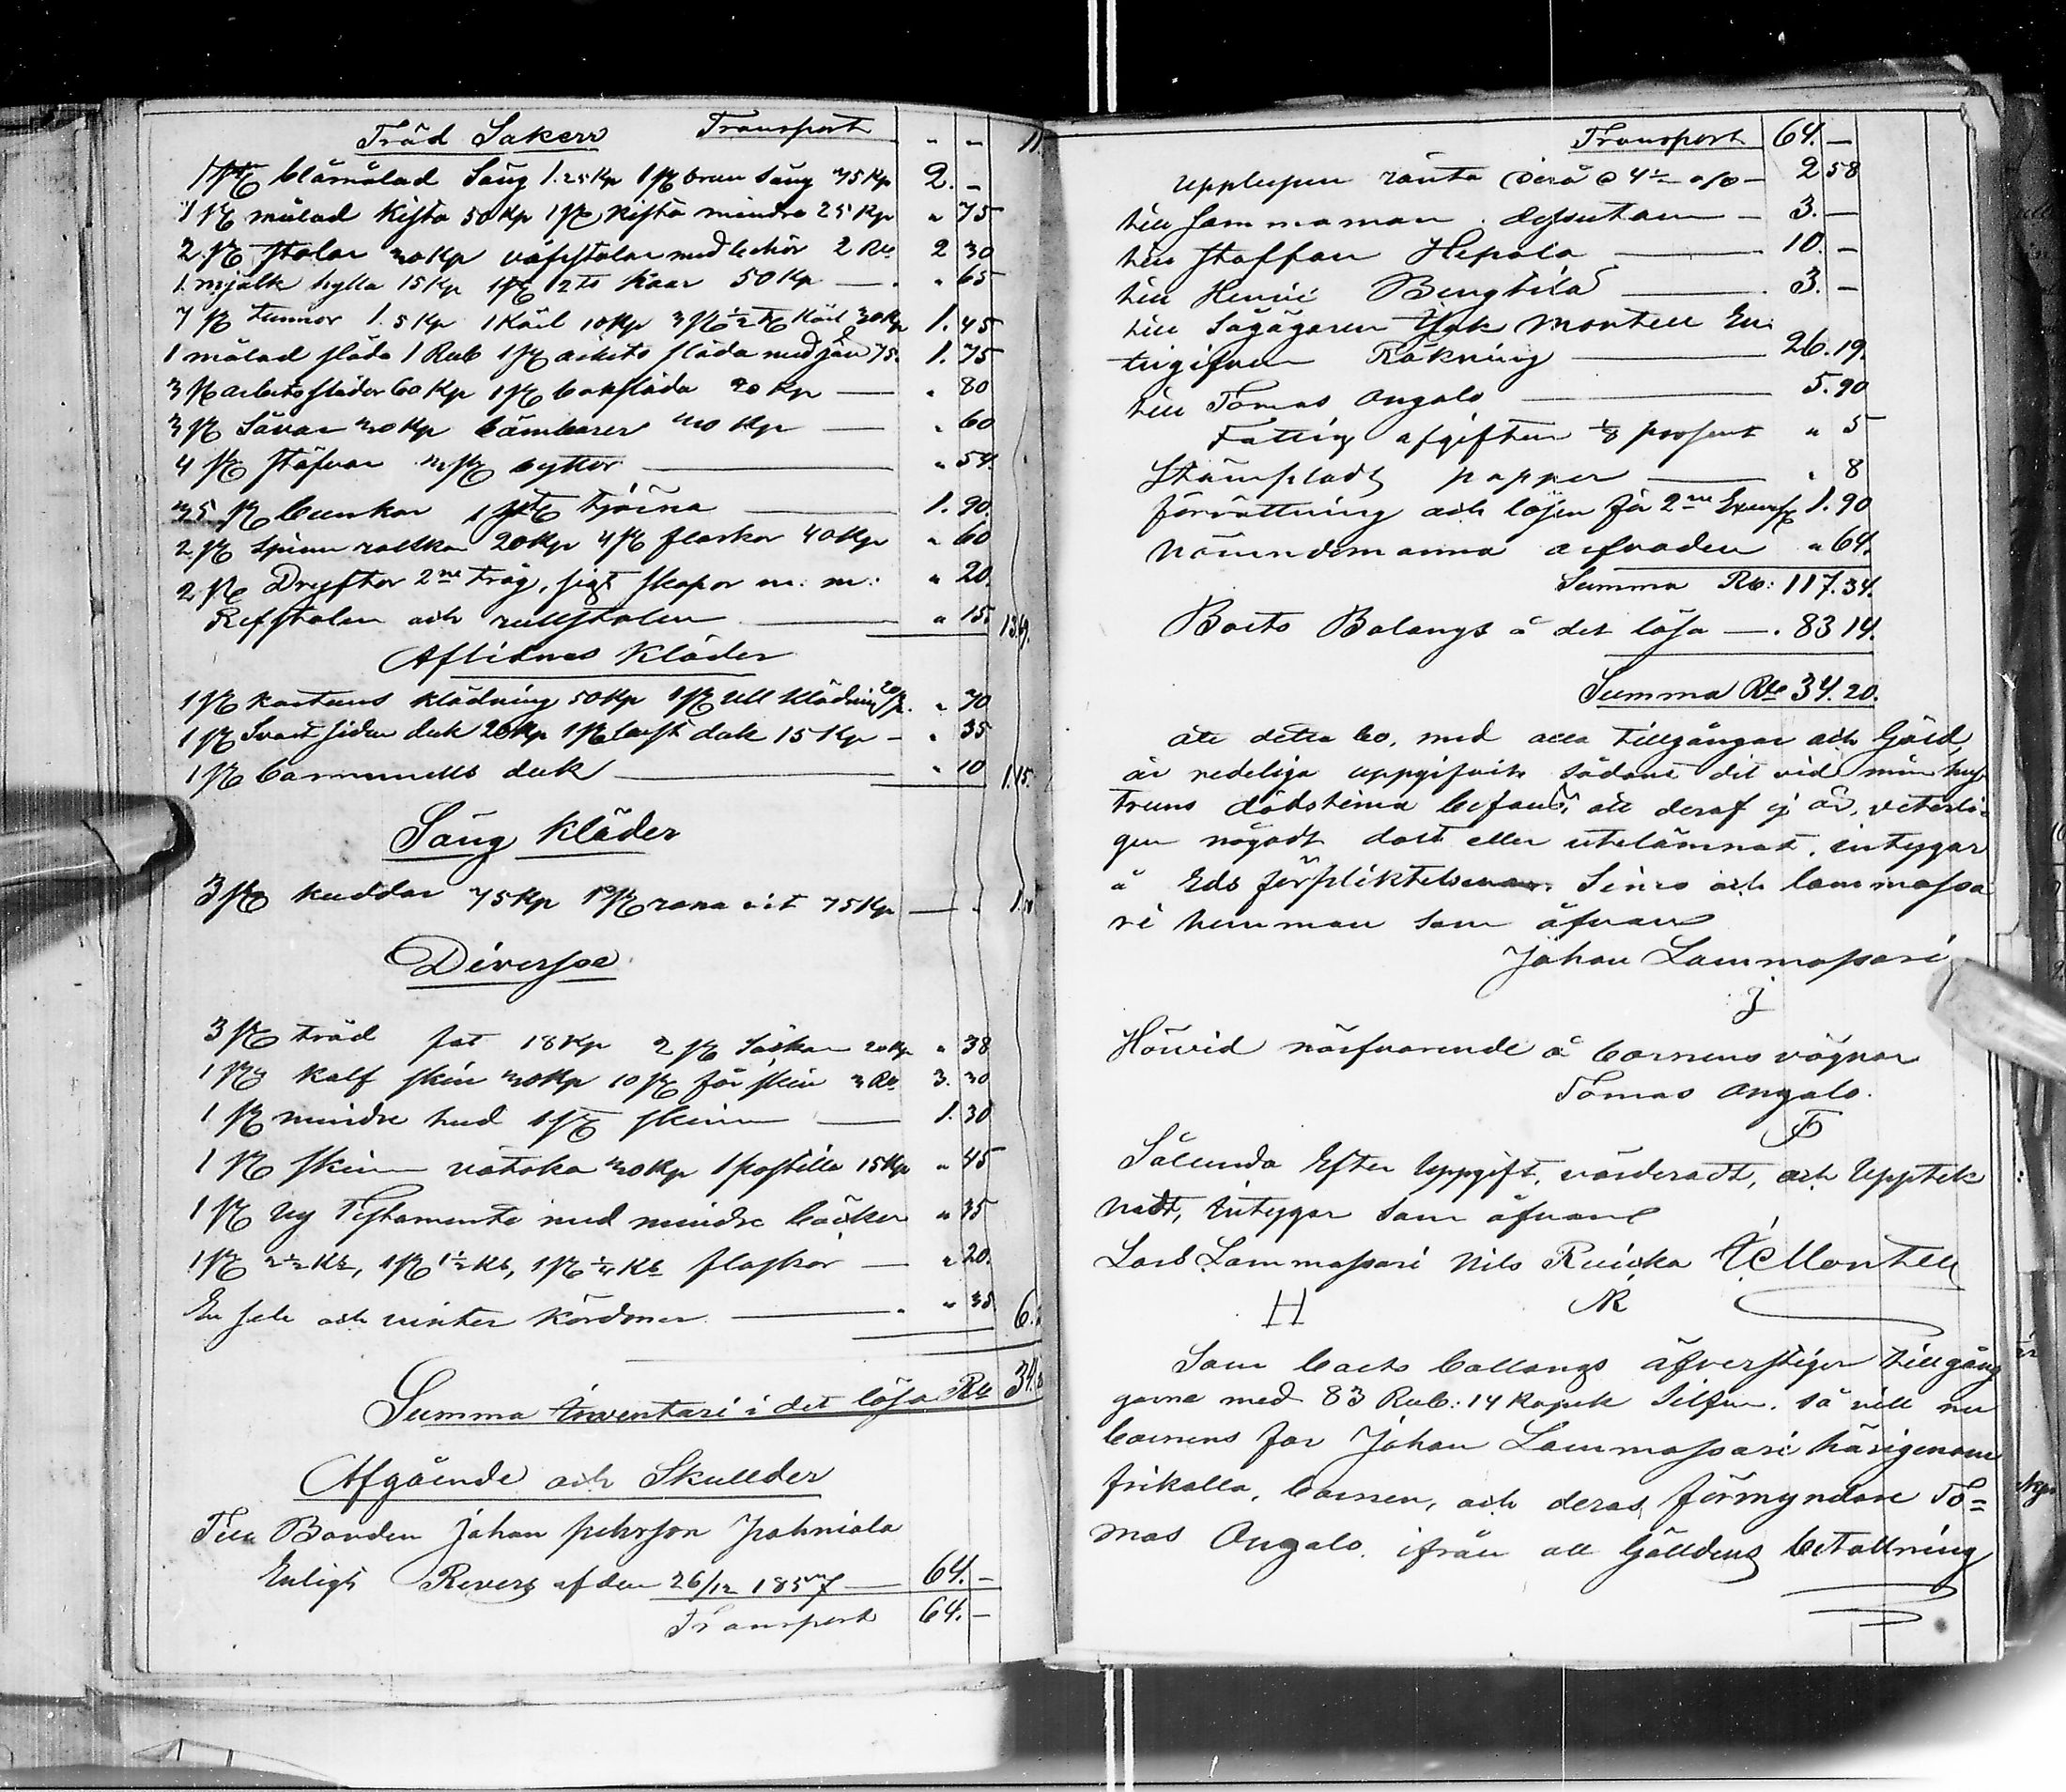 Träd Saker Transport - - 11.
1 st blåmålad Säng 1.25 Kp 1 st brun säng 75 Kp 2. -
1 st målad Kista 50 Kp 1 st Kista mindre 25 Kp " 75
2 st stolar 30 Kp väfstolar med 2 Rb. 2 30
1 mjölk hylla 15 Kp 1 st Kaar 50 Kp — " 65
7 st tunnor 1. 5 Kp 1 Käril 10 Kp 3 st Käril 30 Kp 1. 45
1 målad släda 1 Rub 1 st arbets släda med järn 75. 1. 75
3 st arbets slädor 60 Kp 1 st baksläda 20 Kp — " 80
3 st Såvar 30 Kp ämbarer Kp — " 60
4 st stäfvor st byttor — " 54
35 st bunkar 1 st tjärna — 1. 90
2 st Spinn rattkar 20 Kp 4 st flaskor 40 Kp " 60
2 st Dryftor 2ne tråg, sigt skapor m. m: " 20
Refstolen och rullstolen — " 15. 13.69.
Aflidnes Kläder
1 st kartuns klädning 50 Kp 1 st Ull klädning 20 Kp. " 70
1 st Svart siden duk 20 Kp 1 st duk 15 Kp - " 35
1 st bommulls duk — " 10 1.15.
Säng Kläder
3 st kuddar 75 Kp 1 st rana 75 Kp — . 1.50
Diverse
3 st träd fat 18 Kp 2 st Säckar 20 Kp " 38
1 st Kalf skin 30 Kp 10 st får skin 3 Rb. 3. 30
1 st mindre hud 1 st skinn — 1. 30
1 st skinn vätska 30 Kp 1 postilla 15 Kp " 45
1 st Ny Testamente med mindre böcker " 35
1 st 2½ Kr, 1 st 1½ Kr, 1 st Kr flaskor — " 20.
En sele och vinter kördoner — " 35 6.
Summa inventari i det lösa Rb 34.
Afgående och Skullder
Till Bonden Johan pehrson Johniala
Enligt Revers af den 26/12 1857 — 64. -
Transport 64. -
Transport 64. -
Upplupen ränta derå @ 4½ o/o - 2 58
till samma man dessutom - 3. -
till Staffan Hepola — 10. -
till Henric Bengtila — 3. -
till Sågägaren Montell En
ligifven Räkning — 26.19.
till Tomas Ongalo — 5.90
Fattig afgiften ⅛ prosent " 5
Stämpladt papper — " 8
förrättning och lösen för 2ne Exempl 1.90
Nämndemanna arfvoden " 64.
Summa Rb: 117.34.
Boets Balangs å det lösa —. 83 14.
Summa Rb 34.20.
att detta bo, med alla tillgångar och Gäld,
är redeliga uppgifvit sådant det vid min hus
truns dödstima befans, att deraf ej är, veterli-
gen någodt dolt eller utelämnat, intygar
å Eds förpliktelse. Simo och lammassa
ri hemman som åfvan
Johan Lammassari
J
Härvid närfvarende å barnens vägnar
Tomas Ongalo.
Sålunda Efter Uppgift, värderadt, och Upptek
nadt, intygar som åfvan
Lars Lammassari Nils Ruicka Montell
H NR
Som boets ballangs åfverstiger tillgång
garne med 83 Rub: 14 kopek Silfver. så vill nu
barnens far Johan Lammassari härigenom
frikalla, barnen, och deras förmyndare To=
mas Ongalo ifrån all Gälldens betallning